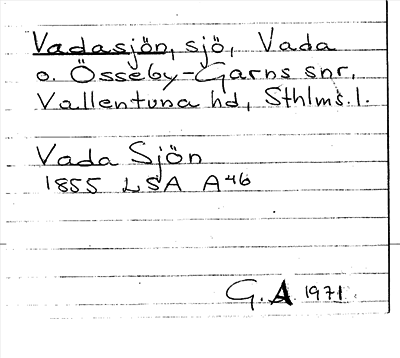 Vadasjön, sjö, Vada
o. Össeby-Garns snr,
Vallentuna hd, Sthlms. l.
Vada Sjön
1855 LSA A46
G. A 1971